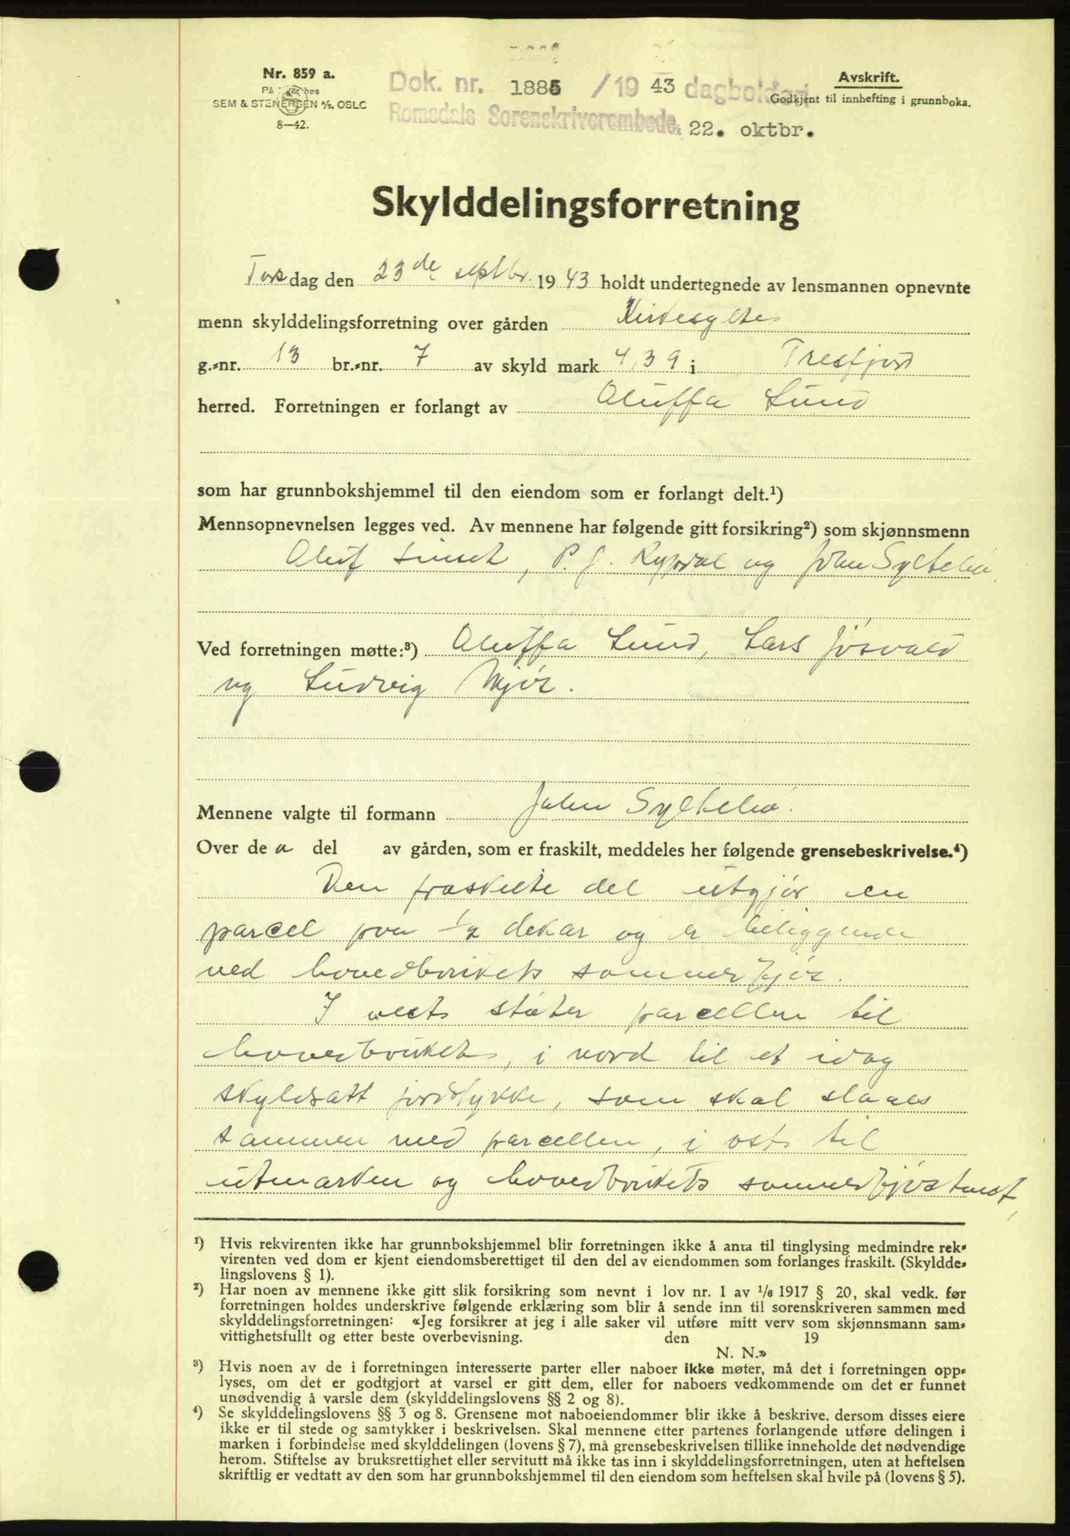 Nr. 859 a.
SEM & STENERSEN A/S, OSLO
8—42.
Dok. nr. 1885 / 19 43 dagboken
Romsdals Sorenskriverembede, 22. oktbr.
Avskrift.
Godkjent til innhefting i grunnboka.
Skylddelingsforretning
Torsdag den 23de septbr. 19 43 holdt undertegnede av lensmannen opnevnte
menn skylddelingsforretning over gården Kirkesylte
g.-nr. 13 br.-nr. 7 av skyld mark 4,39 i Tresfjord
herred. Forretningen er forlangt av Oluffa Lund
som har grunnbokshjemmel til den eiendom som er forlangt delt.¹)
Mennsopnevnelsen legges ved. Av mennene har følgende gitt forsikring²) som skjønnsmenn
Oluf P. J. Rypdal og John Syltebø
Ved forretningen møtte:³) Oluffa Lund, Lars Jøsvold
og Ludvig Mjøs.
Mennene valgte til formann John Syltebø.
Over de a del av gården, som er fraskilt, meddeles her følgende grensebeskrivelse.⁴)
Den fraskilte del utgjør en
parcel på ½ dekar og er beliggende
ved hovedbrukets sommerfjøs.
I vest støter parcellen til
hovedbruket, i nord til et idag
skyldsatt jordstykke, som skal slåes
sammen med parcellen, i øst til
utmarken og hovedbrukets sommerfjøstuft,
¹) Hvis rekvirenten ikke har grunnbokshjemmel blir forretningen ikke å anta til tinglysing medmindre rek-
virenten ved dom er kjent eiendomsberettiget til den del av eiendommen som forlanges fraskilt. (Skyldde-
lingslovens § 1).
²) Har noen av mennene ikke gitt slik forsikring som nevnt i lov nr. 1 av 1/6 1917 § 20, skal vedk. før
forretningen holdes underskrive følgende erklæring som blir å sende inn til sorenskriveren sammen med
skylddelingsforretningen: «Jeg forsikrer at jeg i alle saker vil utføre mitt verv som skjønnsmann sam-
vittighetsfullt og etter beste overbevisning. den 19
N. N.»
³) Hvis noen av de i forretningen interesserte parter eller naboer ikke møter, må det i forretningen opp-
lyses, om det er godtgjort at varsel er gitt dem, eller for naboers vedkommende om det er funnet
unødvendig å varsle dem (skylddelingslovens §§ 2 og 8).
⁴) Se skylddelingslovens §§ 3 og 8. Grensene mot naboeiendommer blir ikke å beskrive, dersom disses eiere
ikke er til stede og samtykker i beskrivelsen. Skal mennene etter partenes forlangende utføre delingen i
marken i forbindelse med skylddelingen (lovens § 7), må grensebeskrivelsen tillike inneholde det nødvendige
herom. Stiftelse av bruksrettighet eller servitutt må ikke tas inn i skylddelingsforretningen, uten at heftelsen
skriftlig er vedtatt av den som har grunnbokshjemmel til den eiendom som heftelsen skal hvile på (lovens § 5).